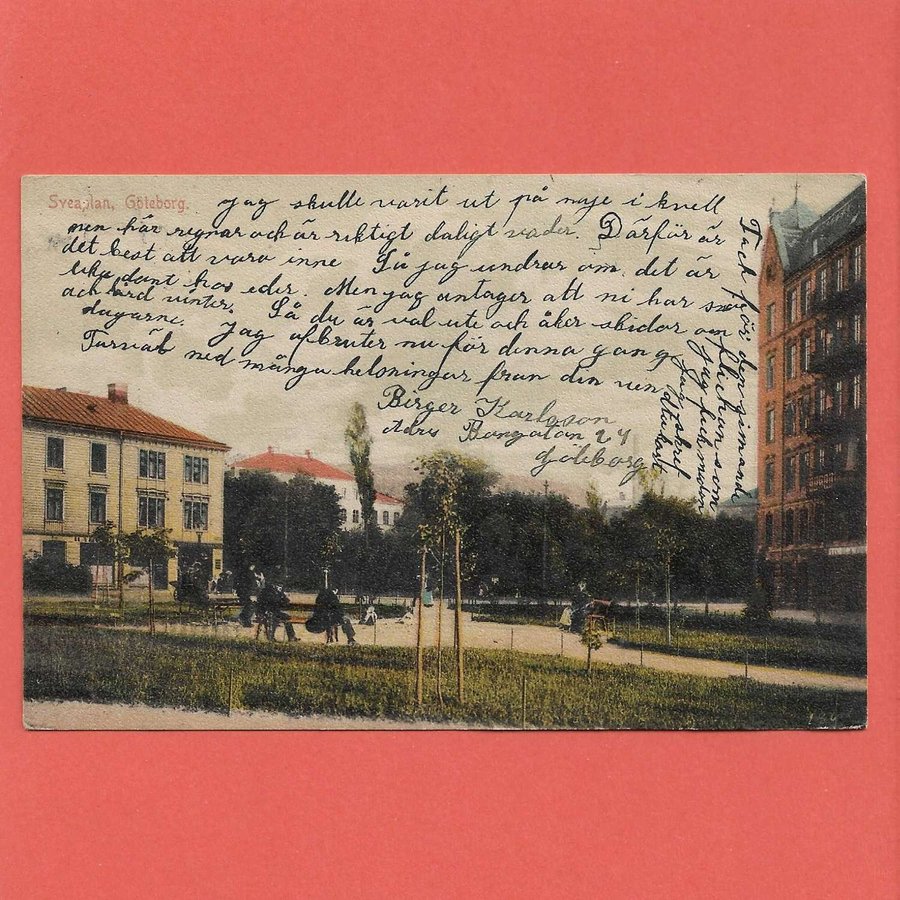 Sveaplan, Göteborg.
Jag skulle varit ut på nöje i kvell
men här regnar och är riktigt daligt vader. Därför är
det best att vara inne Så jag undrar om det är
lika dant hos eder. Men jag antager att ni har snö
och hård vinter. Så du är väl ute och åker skidor om
dagarne. Jag afbruter nu för denna gang
Farväl med många helsningar fran din ven
Birger Karlsson
Adrs 24
Göteborg
Tack för
flickan som
jag fick
jag skref